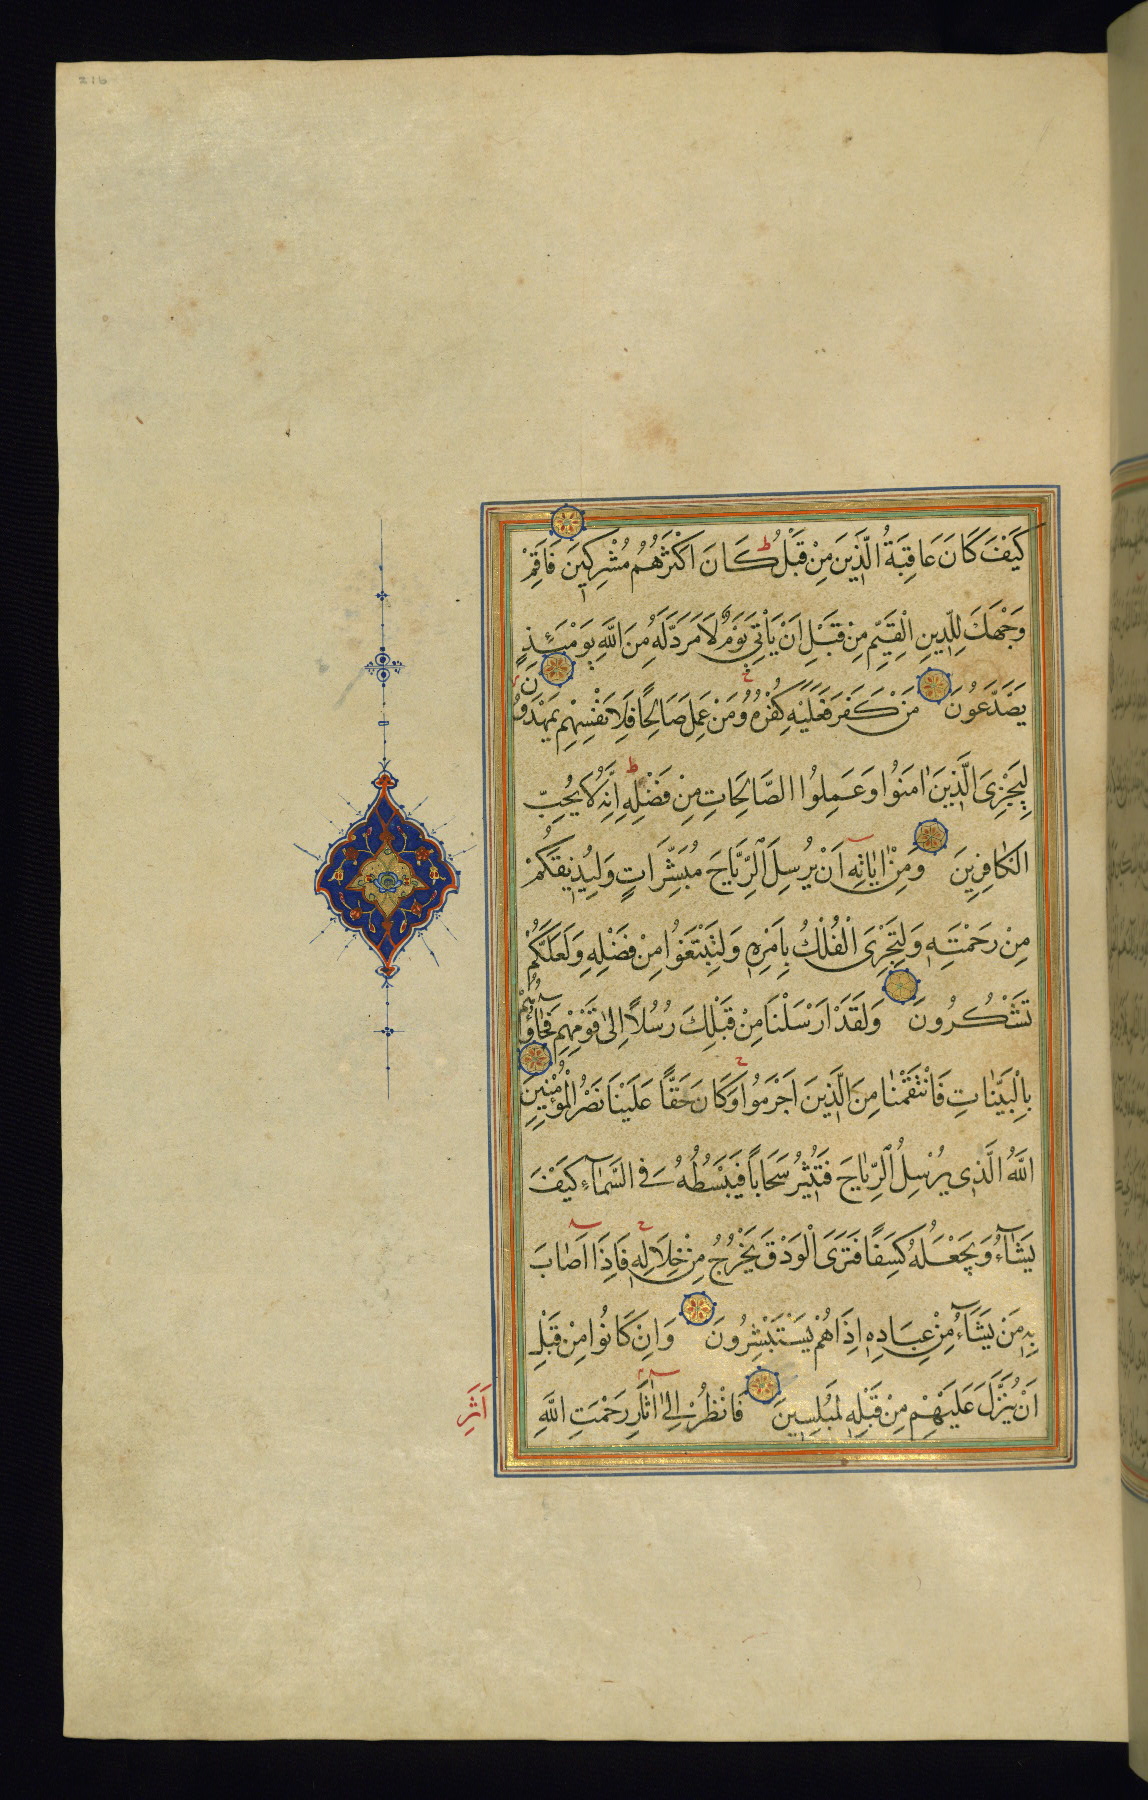 216
كَيْفَ كَانَ عَاقِبَةُ الَّذِينَ مِنْ قَبْلُ ط كَانَ اَكْثَرُهُمْ مُشْرِكِينَ فَاَقِمْ
وَجْهَكَ لِلدِّينِ الْقَيِّمِ مِنْ قَبْلِ اَنْ يَأْتِيَ يَوْمٌ لَا مَرَدَّ لَهُ مِنَ اللَّهِ يَوْمَئِذٍ
يَصَّدَّعُونَ مَنْ كَفَرَ فَعَلَيْهِ كُفْرُهُ وَمَنْ عَمِلَ صَالِحًا فَلِاَنْفُسِهِمْ يَمْهَدُونَ
لِيَجْزِىَ الَّذِينَ اٰمَنُوا وَعَمِلُوا الصَّالِحَاتِ مِنْ فَضْلِهِ ط اِنَّهُ لَا يُحِبُّ
الْكَافِرِينَ وَمِنْ اٰيَاتِهِ اَنْ يُرْسِلَ الرِّيَاحَ مُبَشِّرَاتٍ وَلِيُذِيقَكُمْ
مِنْ رَحْمَتِهِ وَلِتَجْرِىَ الْفُلْكُ بِاَمْرِهِ وَلِتَبْتَغُوا مِنْ فَضْلِهِ وَلَعَلَّكُمْ
تَشْكُرُونَ وَلَقَدْ اَرْسَلْنَا مِنْ قَبْلِكَ رُسُلًا اِلىٰ قَوْمِهِمْ فَجَاؤُهُمْ
بِالْبَيِّنَاتِ فَانْتَقَمْنَا مِنَ الَّذِينَ اَجْرَمُوا وَكَانَ حَقًّا عَلَيْنَا نَصْرُ الْمُؤْمِنِينَ
اللَّهُ الَّذِى يُرْسِلُ الرِّيَاحَ فَتُثِيرُ سَحَابًا فَيَبْسُطُهُ فِى السَّمَآءِ كَيْفَ
يَشَآءُ وَيَجْعَلُهُ كِسَفًا فَتَرَى الْوَدْقَ يَخْرُجُ مِنْ خِلَالِهِ فَاِذَا اَصَابَ
بِهِ مَنْ يَشَآءُ مِنْ عِبَادِهِ اِذَا هُمْ يَسْتَبْشِرُونَ وَاِنْ كَانُوا مِنْ قَبْلِ
اَنْ يُنَزَّلَ عَلَيْهِمْ مِنْ قَبْلِهِ لَمُبْلِسِينَ فَانْظُرْ اِلىٰ اٰثَارِ رَحْمَتِ اللَّهِ
اَثَرِ